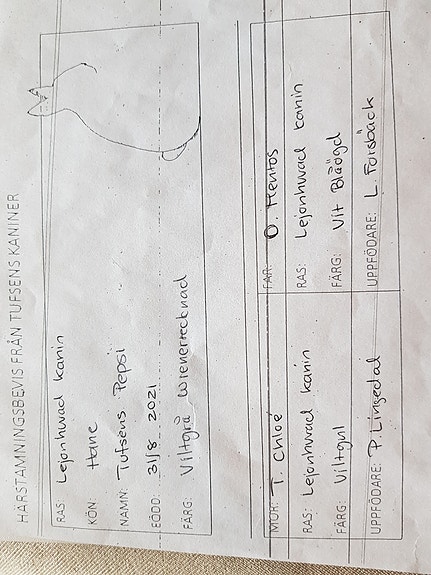 HÄRSTAMNINGSBEVIS FRÅN TUFSENS KANINER
RAS: Lejonhuvad kanin
KÖN: Hane
NAMN: Tufsens Pepsi
FÖDD: 31/8 2021
FÄRG: Viltgrå wienertecknad
MOR: T. Chloé
RAS: Lejonhuvad kanin
FÄRG: Viltgul
UPPFÖDARE: P. Lingedal
FAR: O. Mentos
RAS: Lejonhuvad kanin
FÄRG: Vit Blåögd
UPPFÖDARE: L. Forsbäck